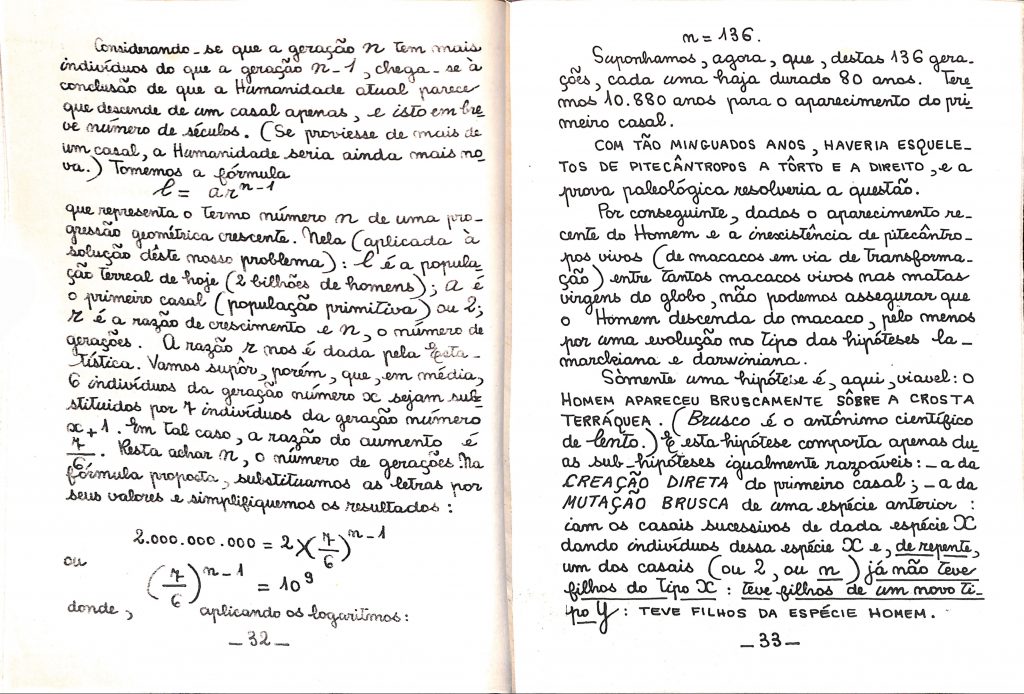 Considerando-se que a geração n tem mais
indivíduos do que a geração n-1, chega-se à
conclusão de que a Humanidade atual parece
que descende de um casal apenas, e isto em bre_
ve número de séculos. (Se proviesse de mais de
um casal, a Humanidade seria ainda mais no_
va.) Tomemos a fórmula
l = ar^{n-1}
que representa o termo número n de uma pro_
gressão geométrica crescente. Nela (aplicada à
solução dêste nosso problema): l é a popula_
ção terreal de hoje (2 bilhões de homens); a é
o primeiro casal (população primitiva) ou 2;
r é a razão de crescimento e n, o número de
gerações. A razão r nos é dada pela Esta_
tística. Vamos supôr, porém, que, em média,
6 indivíduos da geração número x sejam sub_
stituidos por 7 indivíduos da geração número
x+1. Em tal caso, a razão do aumento é
7/6. Resta achar n, o número de gerações. Na
fórmula proposta, substituamos as letras por
seus valores e simplifiquemos os resultados:
2.000.000.000 = 2 × (7/6)^{n-1}
ou
(7/6)^{n-1} = 10^9
donde, aplicando os logaritmos:
_32_
n = 136.
Suponhamos, agora, que, destas 136 gera_
ções, cada uma haja durado 80 anos. Tere_
mos 10.880 anos para o aparecimento do pri_
meiro casal.
COM TÃO MINGUADOS ANOS, HAVERIA ESQUELE_
TOS DE PITECÂNTROPOS A TÔRTO E A DIREITO, e a
prova paleológica resolveria a questão.
Por conseguinte, dados o aparecimento re_
cente do Homem e a inexistência de pitecântro_
pos vivos (de macacos em via de transforma_
ção) entre tantos macacos vivos nas matas
virgens do globo, não podemos assegurar que
o Homem descenda do macaco, pelo menos
por uma evolução no tipo das hipóteses la_
marckiana e darwiniana.
Sòmente uma hipótese é, aqui, viavel: O
HOMEM APARECEU BRUSCAMENTE SÔBRE A CROSTA
TERRÁQUEA. (Brusco é o antônimo científico
de lento.) E esta hipótese comporta apenas du_
as sub-hipóteses igualmente razoáveis: _ a da
CREAÇÃO DIRETA do primeiro casal; _ a da
MUTAÇÃO BRUSCA de uma espécie anterior:
iam os casais sucessivos de dada espécie X
dando indivíduos dessa espécie X e, de repente,
um dos casais (ou 2, ou n) já não teve
filhos do tipo X: teve filhos de um novo ti_
po Y: TEVE FILHOS DA ESPÉCIE HOMEM.
_33_